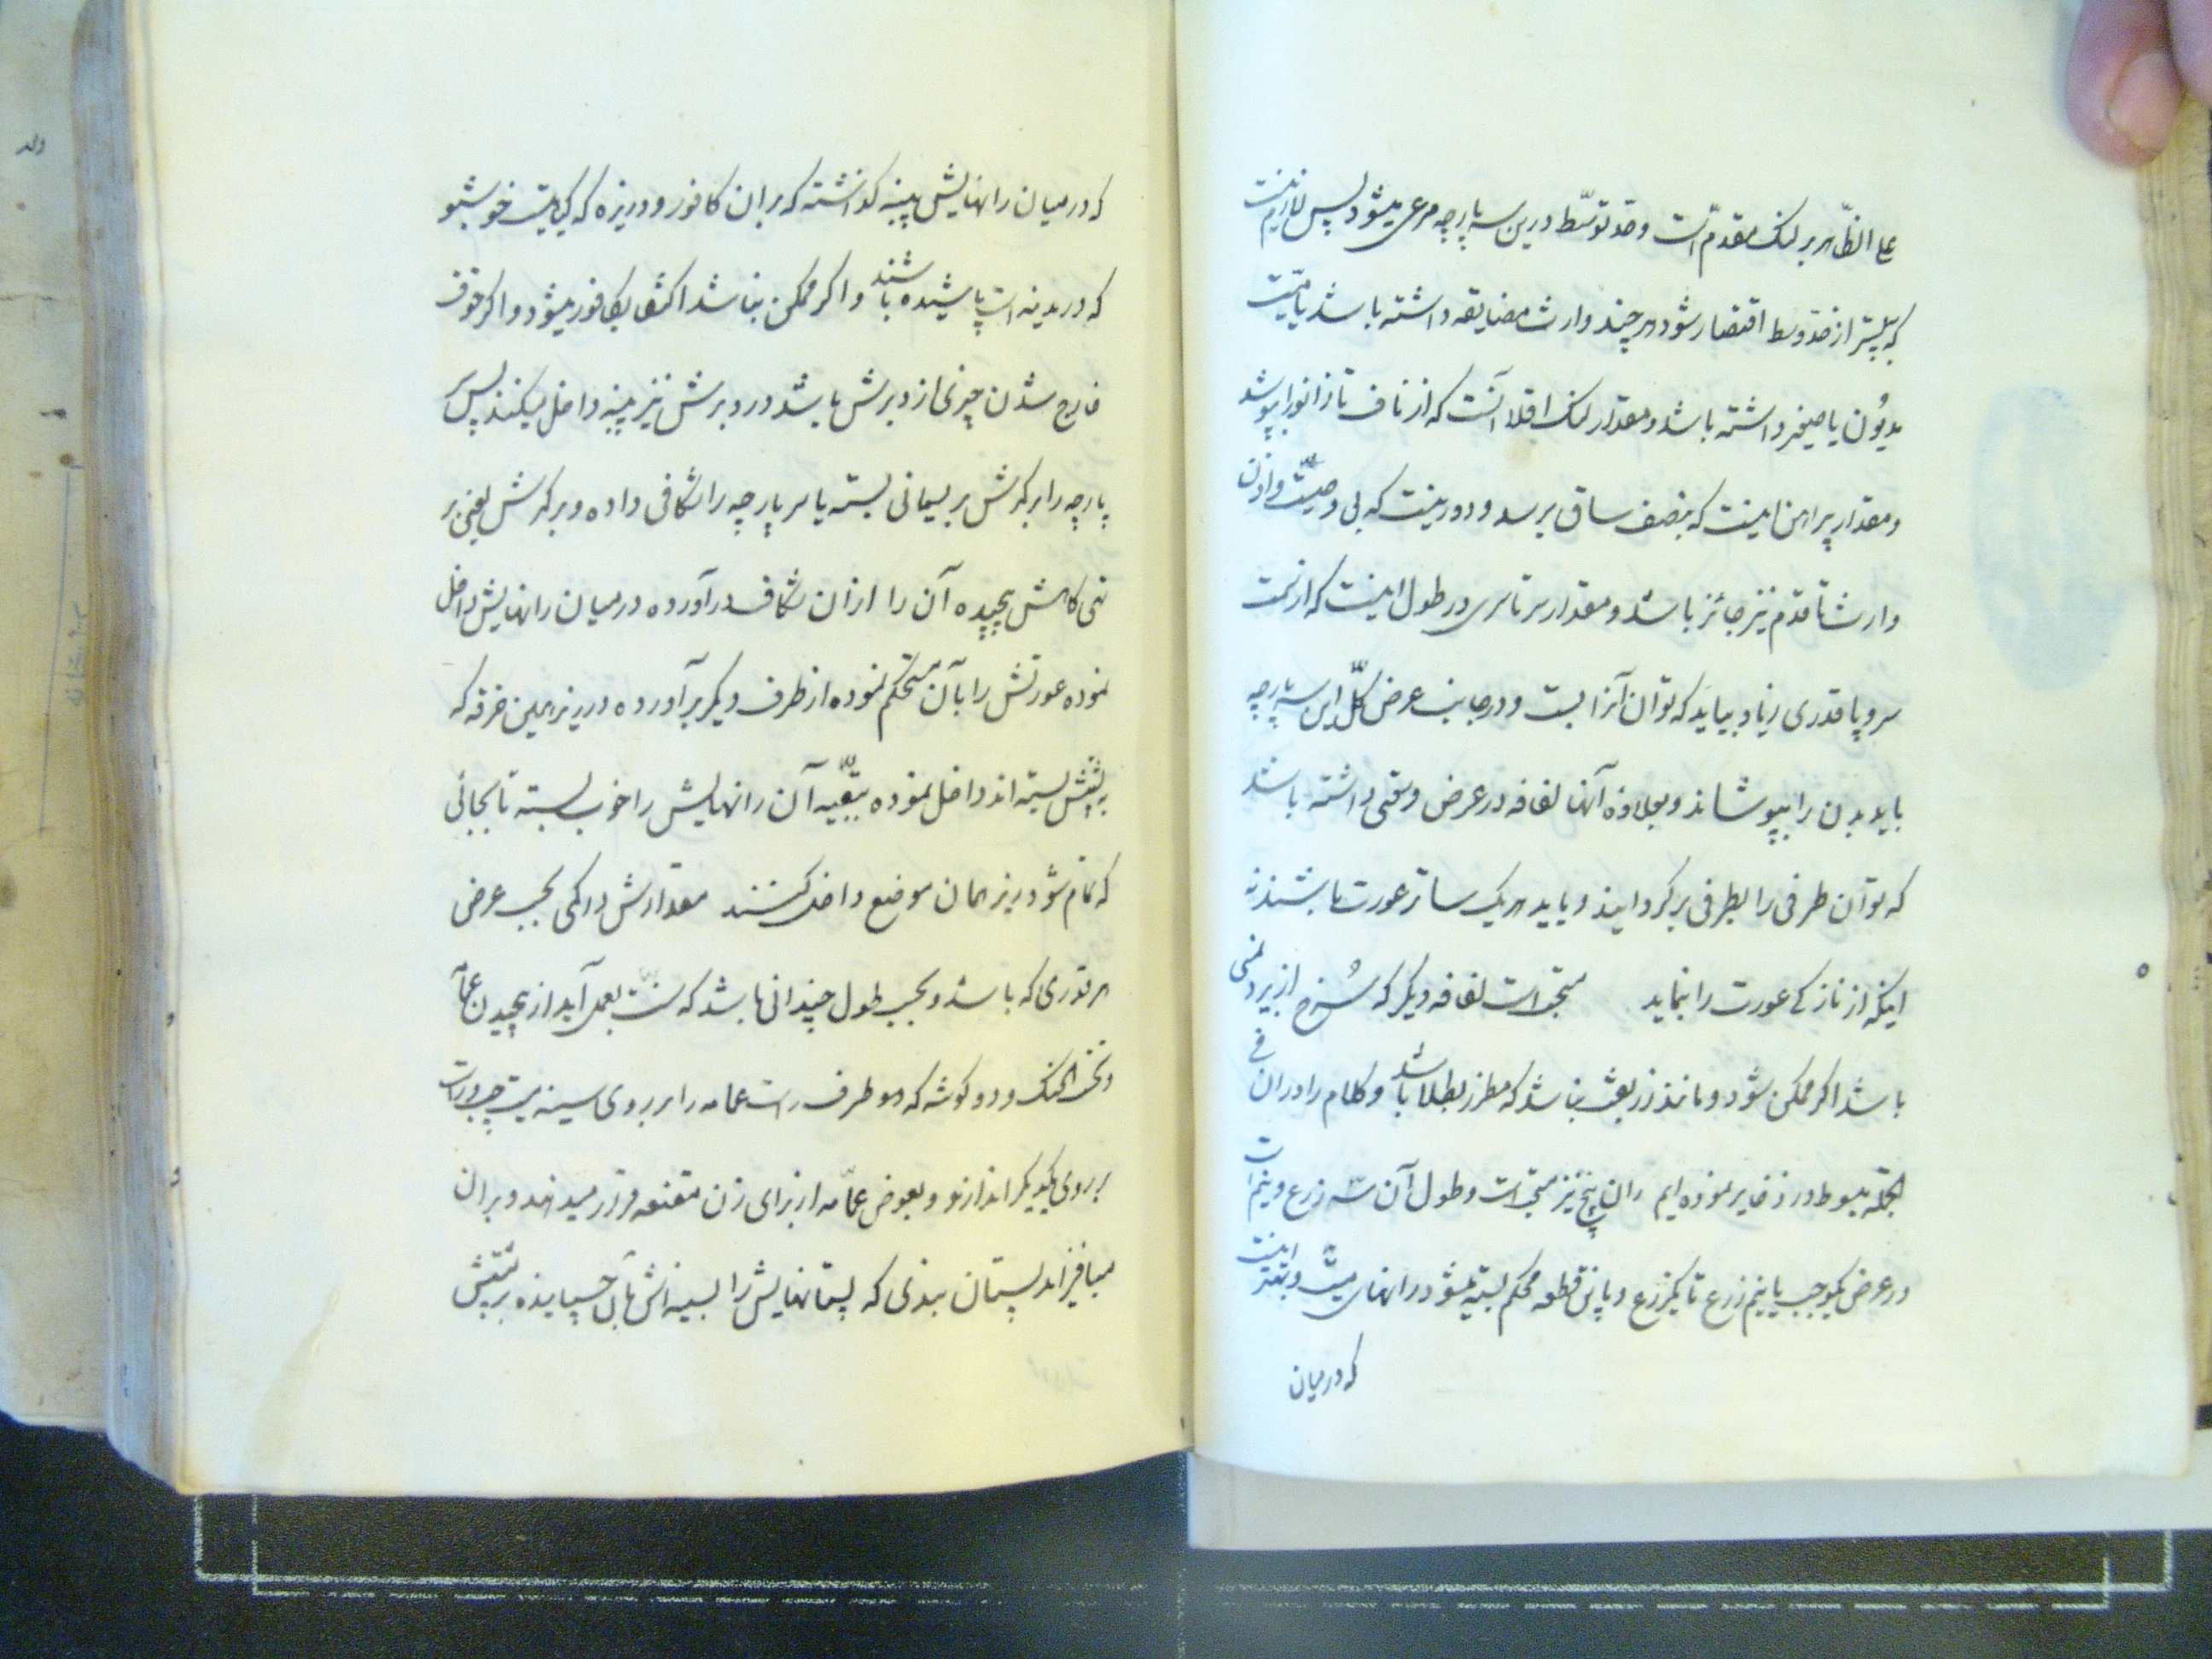 علی الظاهر بر لنک مقدّم است و حدّ توسّط درین سه پارچه مرعی میشود پس لازم نیست
که بپست‌تر از حدّ وسط اقتصار شود هر چند وارث مضایقه داشته باشد یا میّت
مدیُون یا صغیر داشته باشد و مقدار لنک اقلا آنست که از ناف تا زانو را بپوشد
و مقدار پیراهن اینست که بنصف ساق برسد و دور نیست که بی وصیّت و اذن
وارث تا قدم نیز جائز باشد و مقدار سرتاسری در طول اینست که از سمت
سر و پا قدری زیاد بیاید که توان آنرا بست و در جانب عرض کلّ این سه پارچه
باید بدن را بپوشاند و بعلاوه آنها لفافه در عرض وسعتی داشته باشد
که توان طرفی را بطرفی برگردانید و باید هر یک ساتر عورت باشند نه
اینکه از نازکی عورت را بنماید مستحبّ است لفافه دیگر که سُرخ از برد یمنی
باشد اگر ممکن شود و مانند زربفت نباشد که مطرّز بطلا باشد و کلام را در ان فی
الجمله مبسوط در ذخایر نموده ایم ران پیچ نیز مستحبّ است و طول آن سه ذرع و نیم است
در عرض یکوجب یا نیم ذرع تا یکذرع و باین قطعه محکم بسته میشود رانهای میّت و بهتر اینست
که درمیان
که درمیان رانهایش پنبه گذاشته که بر ان کافور و دریزه که گیاهیست خوشبو
که در مدینه است پاشیده باشند و اگر ممکن نباشد اکتفا بکافور میشود و اگر خوف
خارج شدن چیزی از دبرش باشد در دبرش نیز پنبه داخل میکنند پس
پارچه را بر کمرش بریسمانی بسته یا سر پارچه را شکافی داده و بر کمرش یعنی بر
تهی کاهش پیچیده آن را ازان شکاف درآورده درمیان رانهایش داخل
نموده عورتش را بآن مستحکم نموده از طرف دیگر برآورده در زیر همین خرقه که
بر پشتش بسته اند داخل نموده بقیّه آن رانهایش را خوب بسته تا بجائی
که تمام شود در زیر همان موضع داخل کنند مقدارش در کمی بحسب عرض
هر قدری که باشد و بحسب طول چندانی باشد که سنّت بعمل آید از پیچیدن عمامه
و تحت الحنک و دو گوشه که دو طرف راست عمامه را بر روی سینه میّت چپ و راست
بر روی یکدیگر اندازند و بعوض عمّامه از برای زن مقنعه قرار میدهند و بر ان
میافزایند پستان بندی که پستانهایش را بسینه اش بآن چسپانیده بر پشتش